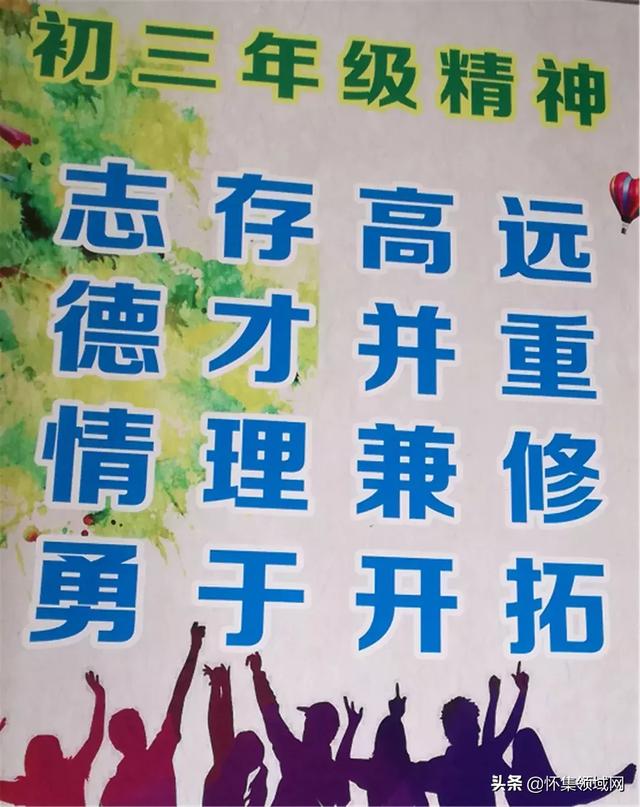 初三年级精神
志存高远
德才并重
情理兼修
勇于开拓
头条 @怀集领域网